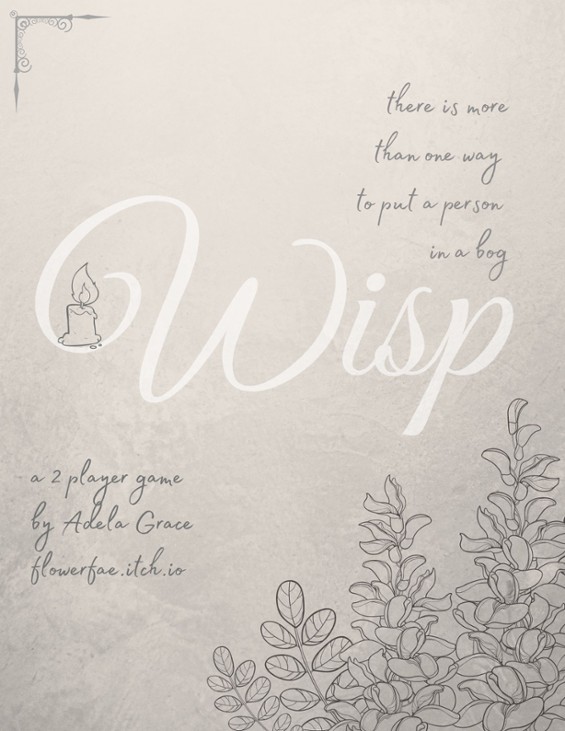 there is more
than one way
to put a person
in a bog
Wisp
a 2 player game
by Adela Grace
flowerfae.itch.io